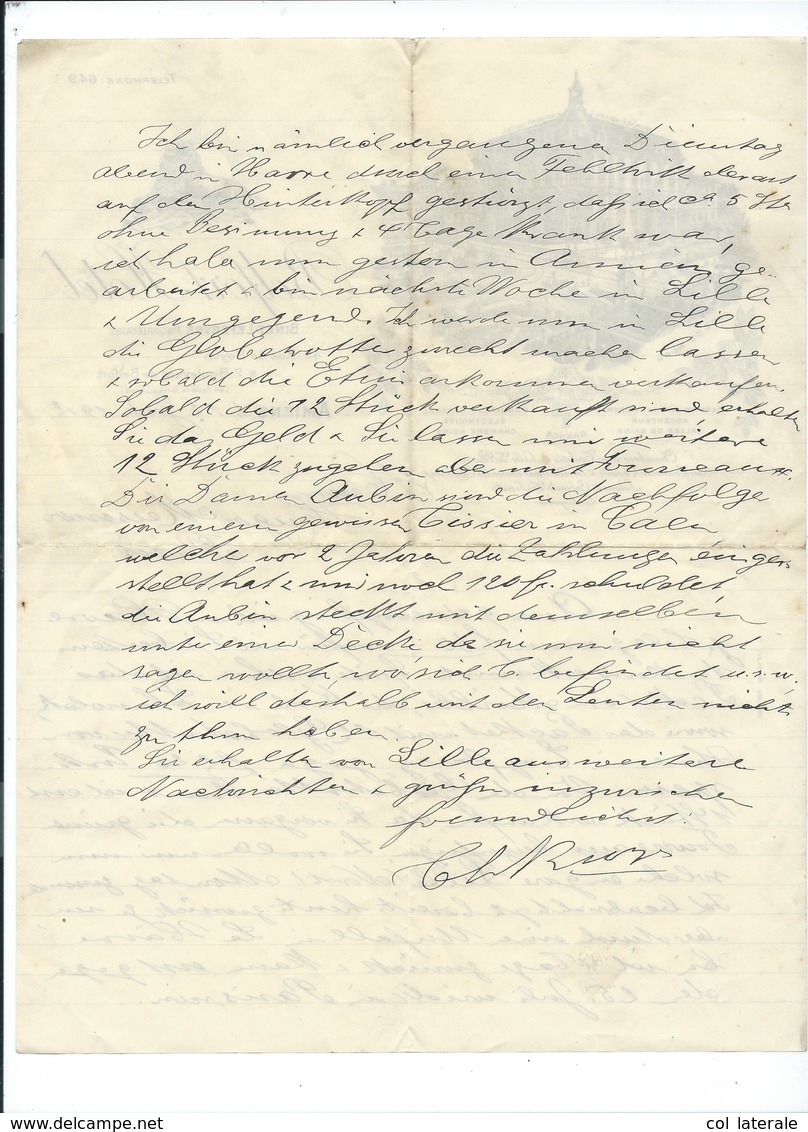 TELEPHONE 649
Ich bin nämlich vergangenen Dienstag
abend in Havre durch einen Fehltritt derart
auf den Hinterkopf gestürzt, daß ich ca 5 Std
ohne Besinnung & 4 Tage krank war,
ich habe nun gestern in Amiens ge-
arbeitet & bin nächste Woche in Lille
& Umgegend. Ich werde nun in Lille
die Globetrotter zurecht machen lassen
& sobald die Etuis ankommen verkaufen.
Sobald die 12 Stück verkauft sind erhalten
Sie das Geld & Sie lassen mir weitere
12 Stück zugehen aber mit
Die Damen Aubin sind die Nachfolger
von einem gewissen Tissier in Caen
welcher vor 2 Jahren die Zahlungen einge-
stellt hat & mir noch 120 fr. schuldet
die Aubin steckt mit demselben
unter einer Decke da sie mir nicht
sagen wollte wo sich T. befindet u.s.w.
ich will deshalb mit den Leuten nichts
zu thun haben.
Sie erhalten von Lille aus weitere
Nachrichten & grüße inzwischen
freundlichst.
col laterale